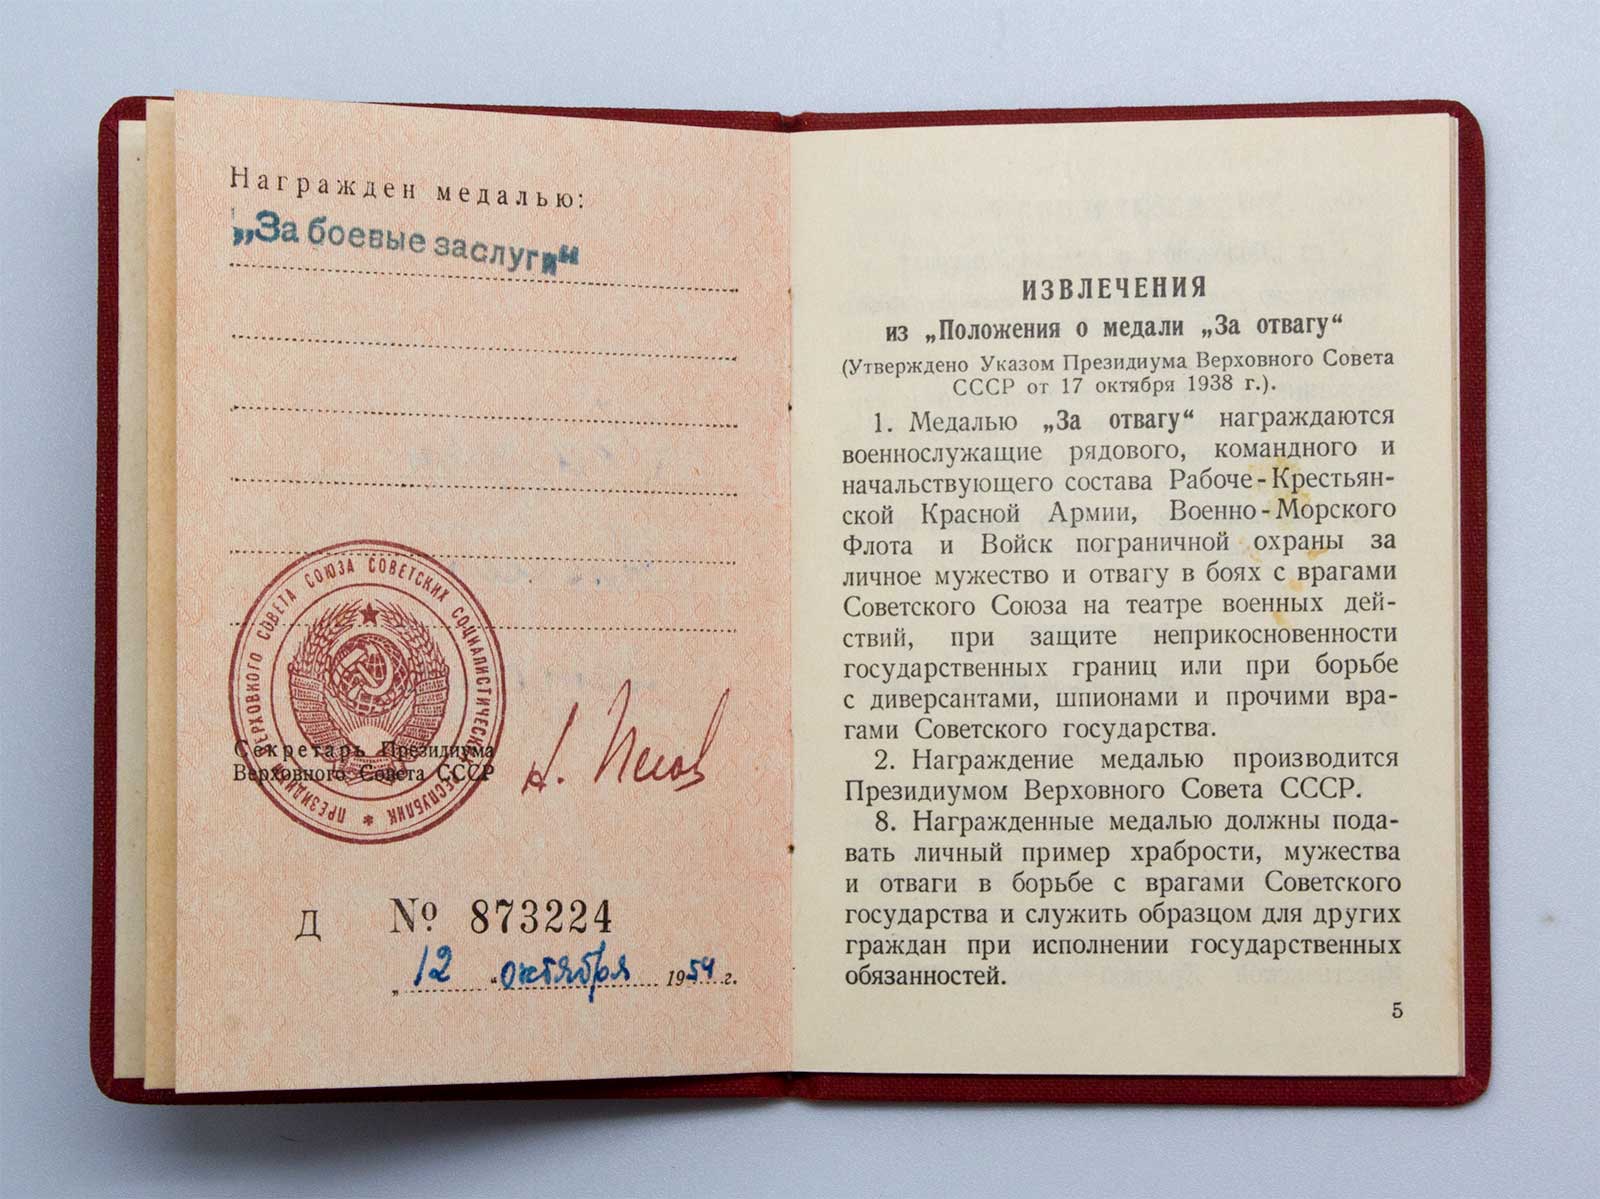 Награжден медалью:
„За боевые заслуги“
ПРЕЗИДИУМ ВЕРХОВНОГО СОВЕТА СОЮЗА СОВЕТСКИХ СОЦИАЛИСТИЧЕСКИХ РЕСПУБЛИК *
Секретарь Президиума
Верховного Совета СССР
Н. Пегов
Д № 873224
„12“ октября 1954 г.
ИЗВЛЕЧЕНИЯ
из „Положения о медали „За отвагу“
(Утверждено Указом Президиума Верховного Совета
СССР от 17 октября 1938 г.).
1. Медалью „За отвагу“ награждаются
военнослужащие рядового, командного и
начальствующего состава Рабоче-Крестьян-
ской Красной Армии, Военно-Морского
Флота и Войск пограничной охраны за
личное мужество и отвагу в боях с врагами
Советского Союза на театре военных дей-
ствий, при защите неприкосновенности
государственных границ или при борьбе
с диверсантами, шпионами и прочими вра-
гами Советского государства.
2. Награждение медалью производится
Президиумом Верховного Совета СССР.
8. Награжденные медалью должны пода-
вать личный пример храбрости, мужества
и отваги в борьбе с врагами Советского
государства и служить образцом для других
граждан при исполнении государственных
обязанностей.
5